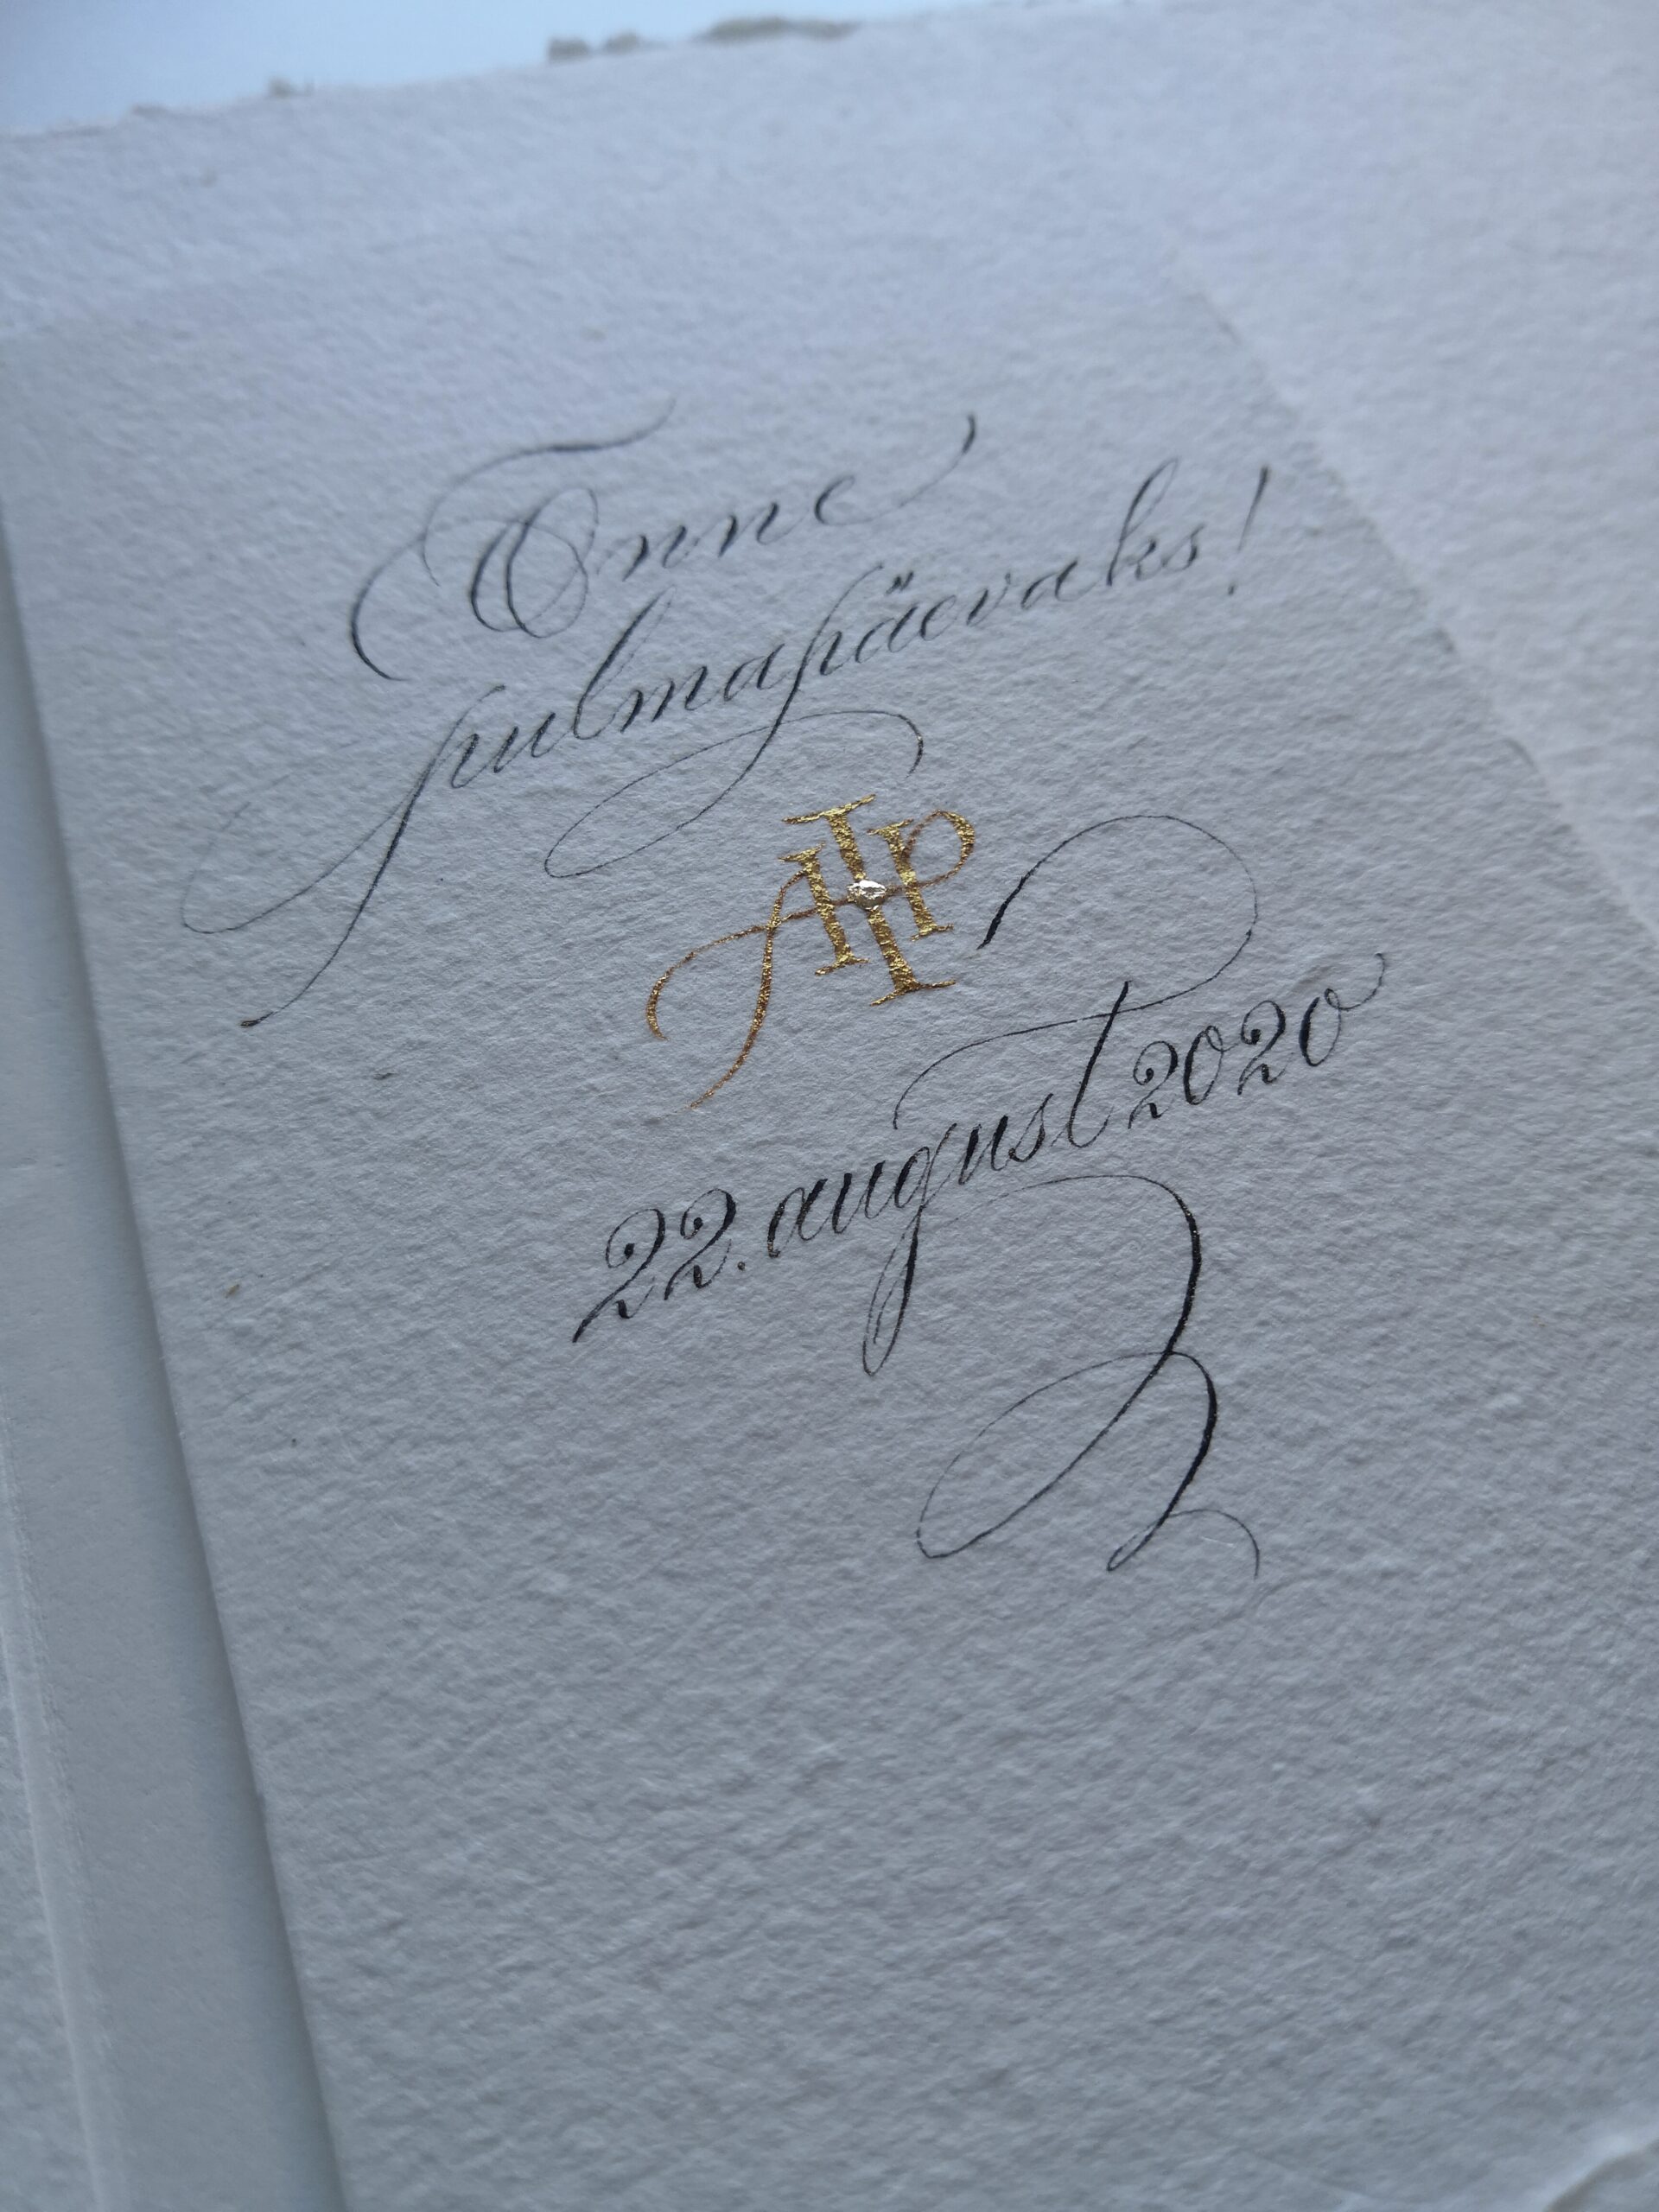 Õnne
pulmapäevaks!
AIP
22. august 2020